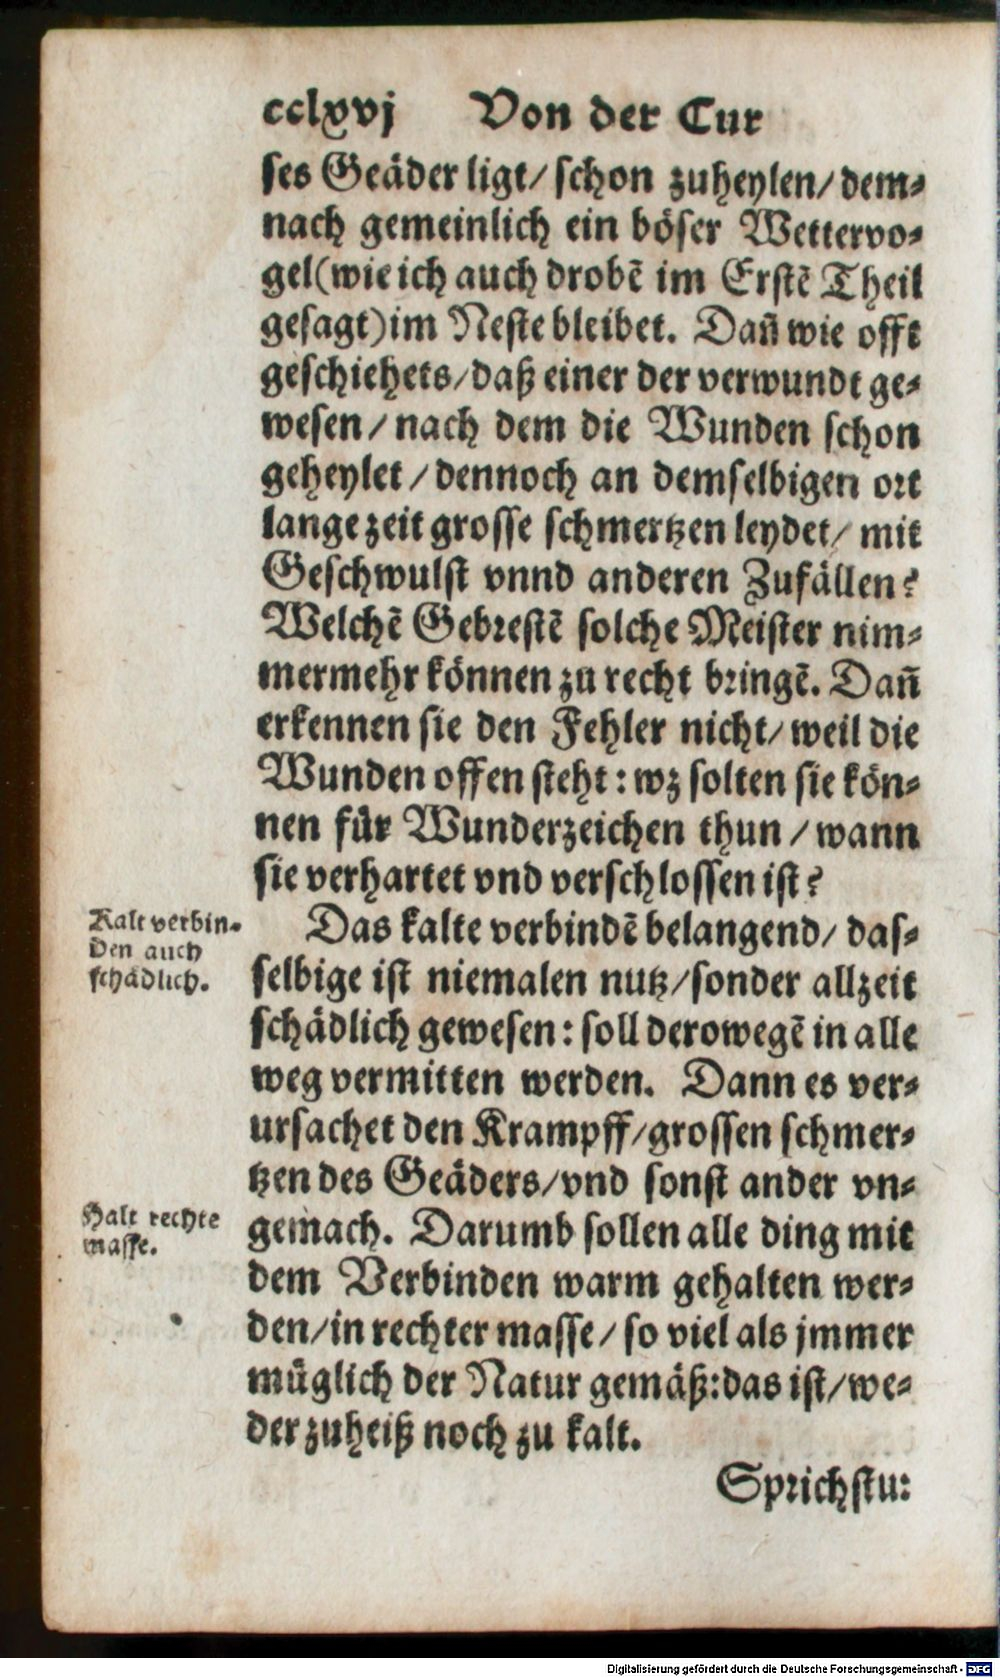 cclxvj Von der Cur
ses Geäder ligt/ schon zuheylen/ dem⸗
nach gemeinlich ein böser Wettervo⸗
gel(wie ich auch drobẽ im Erstẽ Theil
gesagt)im Neste bleibet. Dañ wie offt
geschiehets/daß einer der verwundt ge⸗
wesen/ nach dem die Wunden schon
geheylet/ dennoch an demselbigen ort
lange zeit grosse schmertzen leydet/ mit
Geschwulst vnnd anderen Zufällen?
Welchẽ Gebrestẽ solche Meister nim⸗
mermehr können zu recht bringẽ. Dañ
erkennen sie den Fehler nicht/ weil die
Wunden offen steht: wz solten sie kön⸗
nen für Wunderzeichen thun/ wann
sie verhartet vnd verschlossen ist?
Kalt verbin⸗
den auch
schädlich.
Das kalte verbindẽ belangend/ das⸗
selbige ist niemalen nutz/sonder allzeit
schädlich gewesen: soll derowegẽ in alle
weg vermitten werden. Dann es ver⸗
ursachet den Krampff/grossen schmer⸗
tzen des Geäders/vnd sonst ander vn⸗
Halt rechte
masse.
gemach. Darumb sollen alle ding mit
dem Verbinden warm gehalten wer⸗
den/in rechter masse/ so viel als jmmer
müglich der Natur gemäß:das ist/we⸗
der zuheiß noch zu kalt.
Sprichstu:
Digitalisierung gefördert durch die Deutsche Forschungsgemeinschaft - DFG